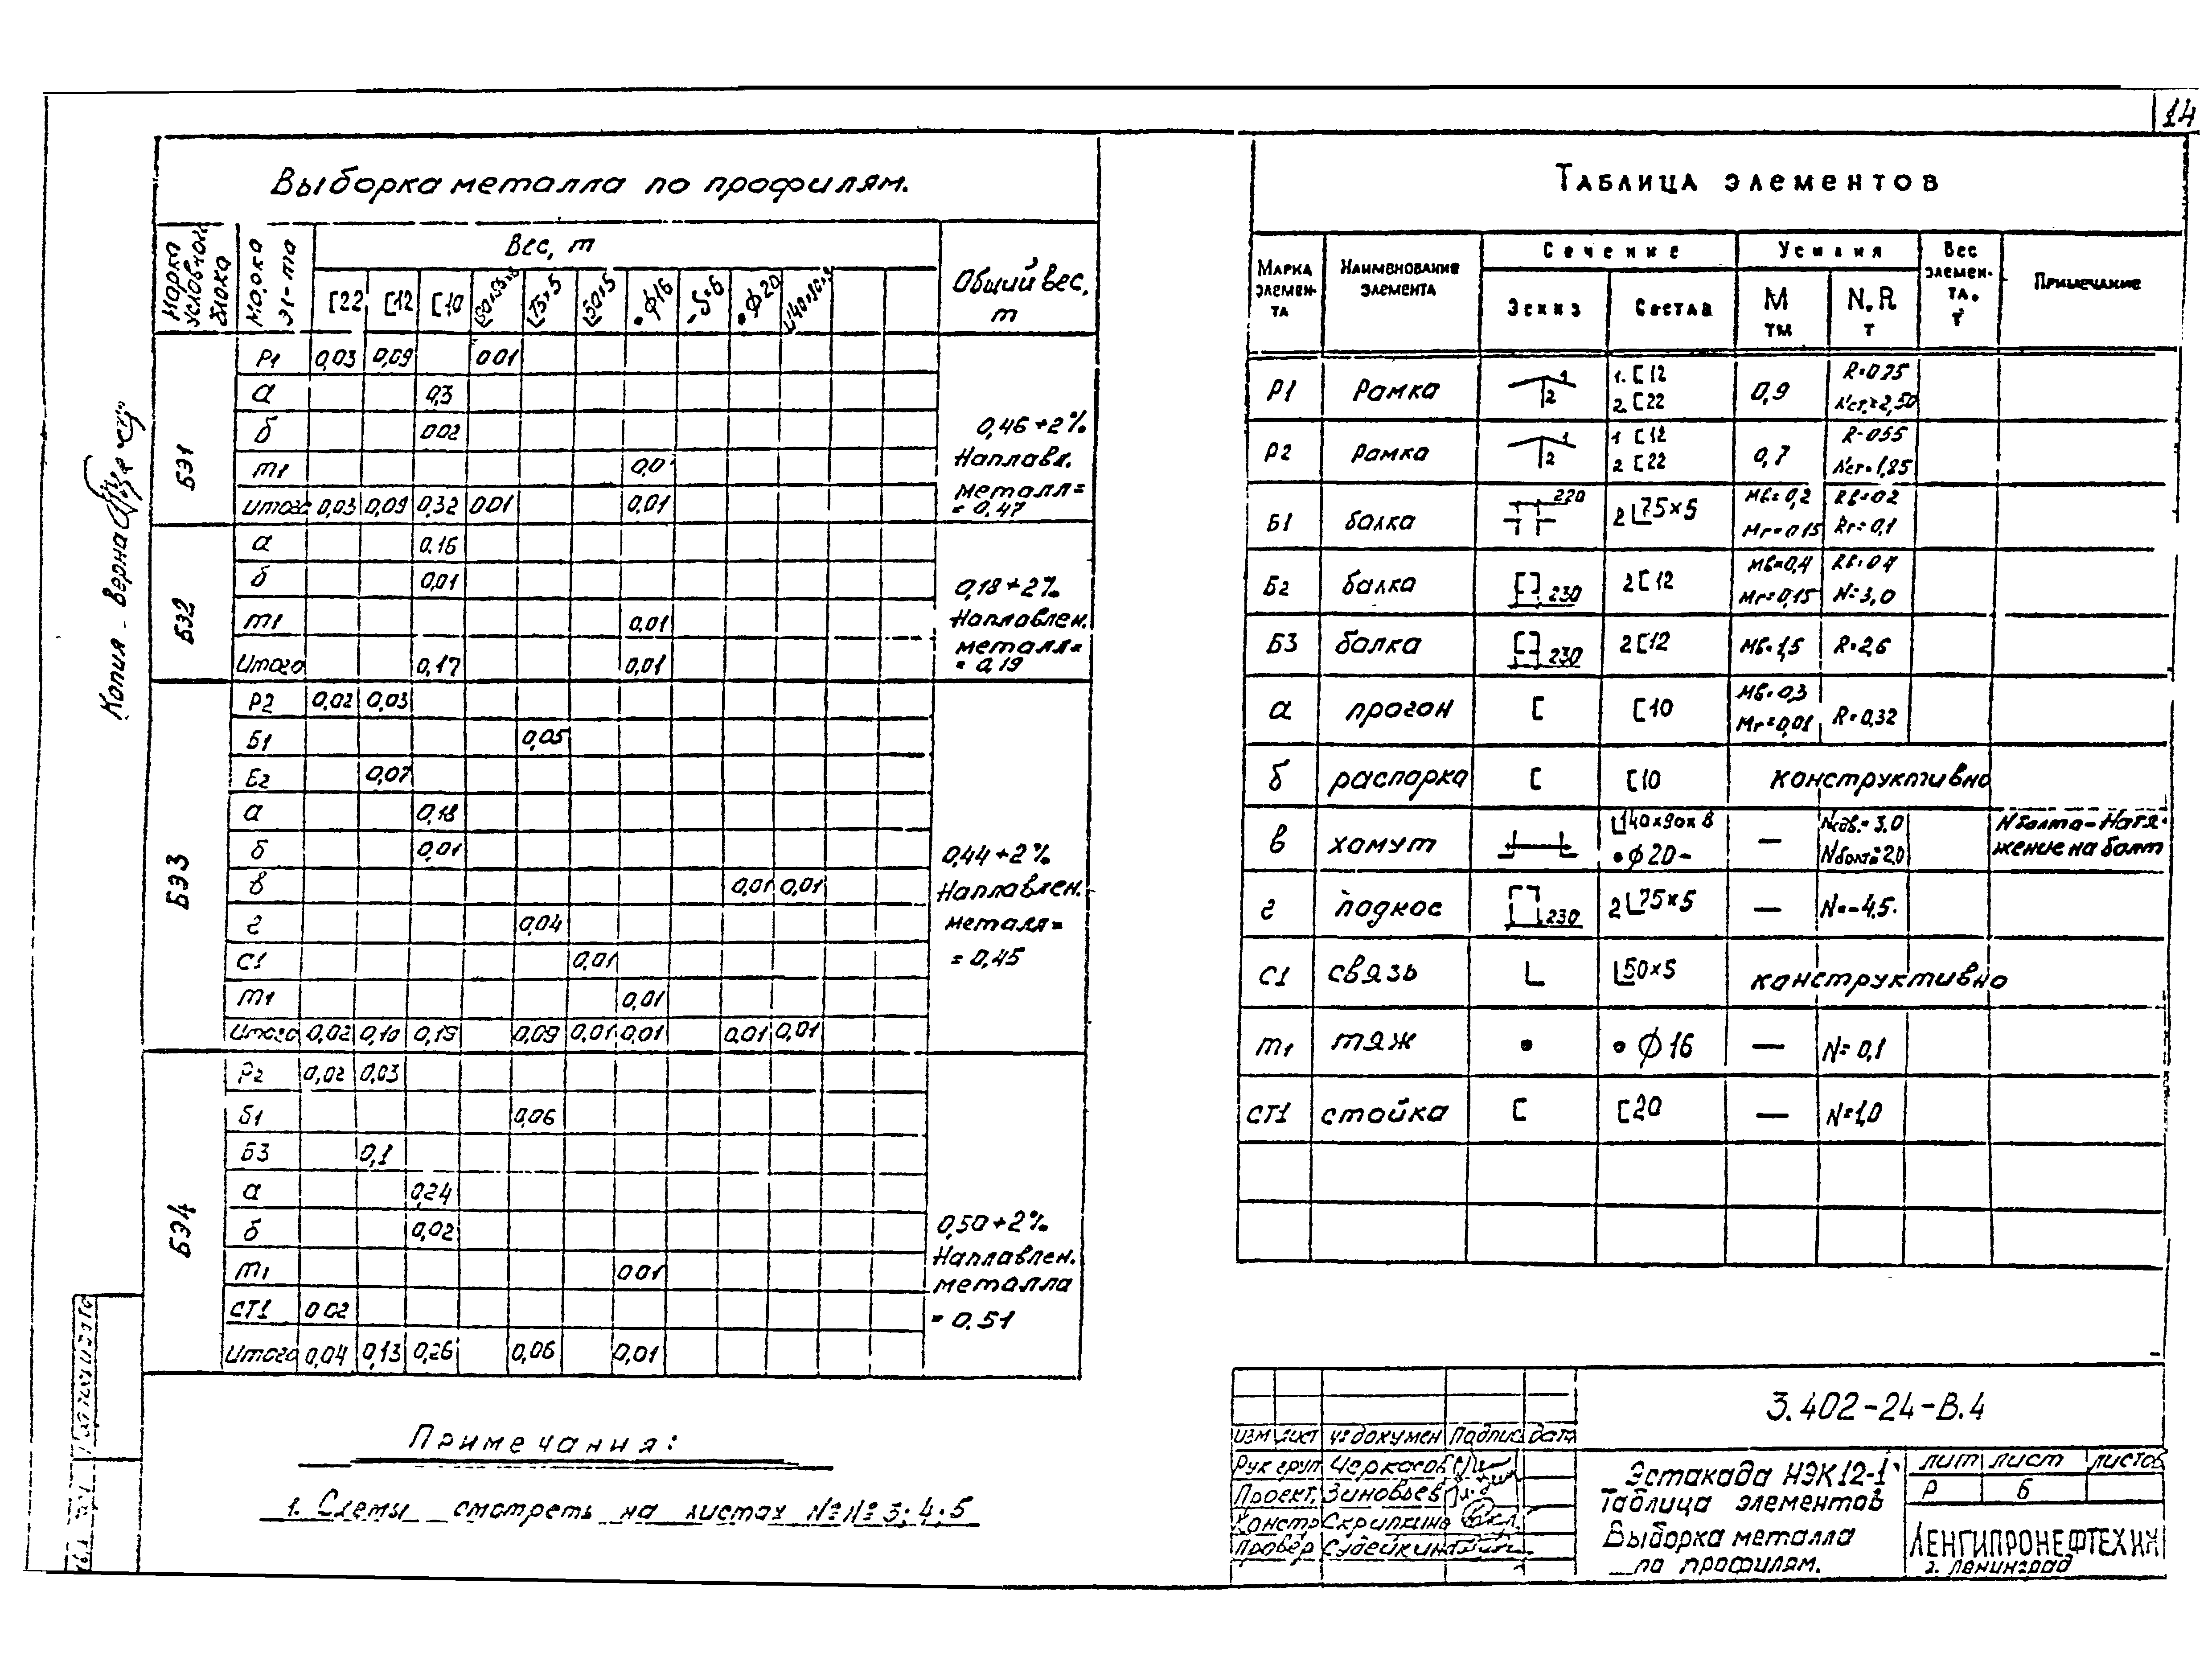 14
Выборка металла по профилям.
Марка условного блока
Марка эл-та
Вес, т
Общий вес, т
[22 [12 [10 ∟90×53×8 ∟75×5 ∟50×5 •ϕ16 -S=6 •ϕ20 ∟140×90×8
БЭ1
Р1 0,03 0,09 0.01
а 0,3
б 0.02
т1 0,0
Итого 0,03 0,09 0,32 0.01 0,01
0,46+2%
Наплавл.
металл=
= 0,47
БЭ2
а 0.16
б 0,01
т1 0,01
Итого 0,17 0,01
0,18+2%
Наплавлен.
металл=
= 0,19
БЭ3
Р2 0,02 0,03
Б1 0,05
Б2 0,07
а 0,18
б 0,01
в 0,01 0,01
г 0,04
С1 0,01
т1 0,01
Итого 0,02 0,10 0,19 0,09 0,01 0,01 0,01 0,01
0,44+2%
Наплавлен.
металл=
= 0,45
БЭ4
Р2 0,02 0,03
Б1 0,06
Б3 0,1
а 0,24
б 0,02
т1 0,01
СТ1 0,02
Итого 0,04 0,13 0,26 0,06 0,01
0,50+2%
Наплавлен.
металла
= 0.51
Примечания:
1. Схемы смотреть на листах №№ 3; 4; 5
Копия - верна
Таблица элементов
Марка элемен-та
Наименование элемента
Сечение
Эскиз
Состав
Усилия
М тм
N, R т
Вес элемен-та. т
Примечание
Р1 Рамка 1 2 1. [12 2. [22 0,9 R=0,75 Nст.=2,50
Р2 Рамка 1 2 1 [12 2 [22 0,7 R=0,55 Nст=1,85
Б1 балка 220 2∟75×5 Мв=0,2 Мг=0,15 Rв=0,2 Rг=0,1
Б2 балка 230 2[12 Мв=0,4 Мг=0,15 Rв=0,4 N=3,0
Б3 балка 230 2[12 Мв=1,5 R=2,6
а прогон [ [10 Мв=0,3 Мг=0,01 R=0,32
б распорка [ [10 конструктивно
в хомут ∟140×90×8 •ϕ20- — Nсдв.=3,0 Nболт=2,0 Nболта-Натя-жение на болт
г подкос 230 2∟75×5 — N=-4,5.
С1 связь ∟ ∟50×5 конструктивно
т1 тяж • •ϕ16 — N=0,1
СТ1 стойка [ [20 — N=1,0
3.402-24-В.4
Изм лист № докумен Подпис дата
Рук груп Черкасов
Проект. Зиновьев
Констр Скрипкина
Провер Судейкина
Эстакада НЭК12-1
Таблица элементов
Выборка металла
по профилям.
лит лист листов
Р 6
ЛЕНГИПРОНЕФТЕХИМ
г. Ленинград